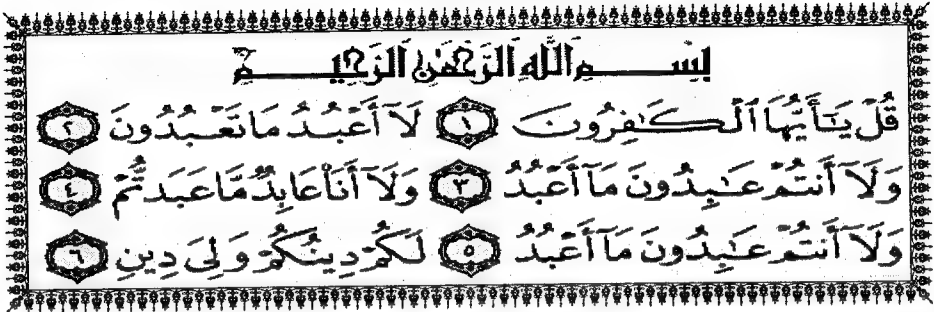 بِسْمِ ٱللَّهِ ٱلرَّحْمَٰنِ ٱلرَّحِيمِ
قُلْ يَـٰٓأَيُّهَا ٱلْكَـٰفِرُونَ ١ لَآ أَعْبُدُ مَا تَعْبُدُونَ ٢
وَلَآ أَنتُمْ عَـٰبِدُونَ مَآ أَعْبُدُ ٣ وَلَآ أَنَا۠ عَابِدٌ مَّا عَبَدتُّمْ ٤
وَلَآ أَنتُمْ عَـٰبِدُونَ مَآ أَعْبُدُ ٥ لَكُمْ دِينُكُمْ وَلِىَ دِينِ ٦